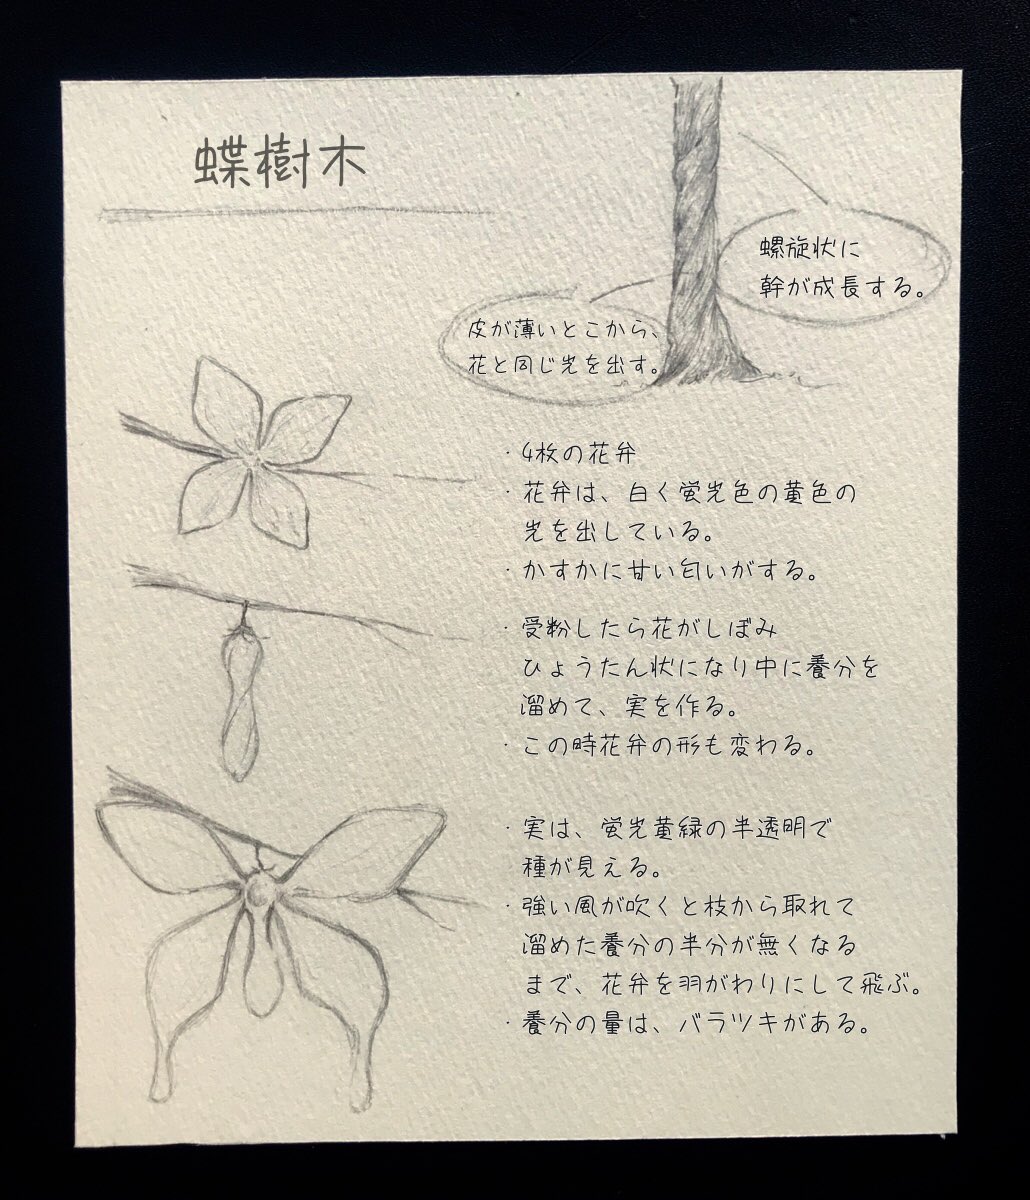 蝶樹木
螺旋状に
幹が成長する。
皮が薄いとこから、
花と同じ光を出す。
・4枚の花弁
・花弁は、白く蛍光色の黄色の
光を出している。
・かすかに甘い匂いがする。
・受粉したら花がしぼみ
ひょうたん状になり中に養分を
溜めて、実を作る。
・この時花弁の形も変わる。
・実は、蛍光黄緑の半透明で
種が見える。
・強い風が吹くと枝から取れて
溜めた養分の半分が無くなる
まで、花弁を羽がわりにして飛ぶ。
・養分の量は、バラツキがある。